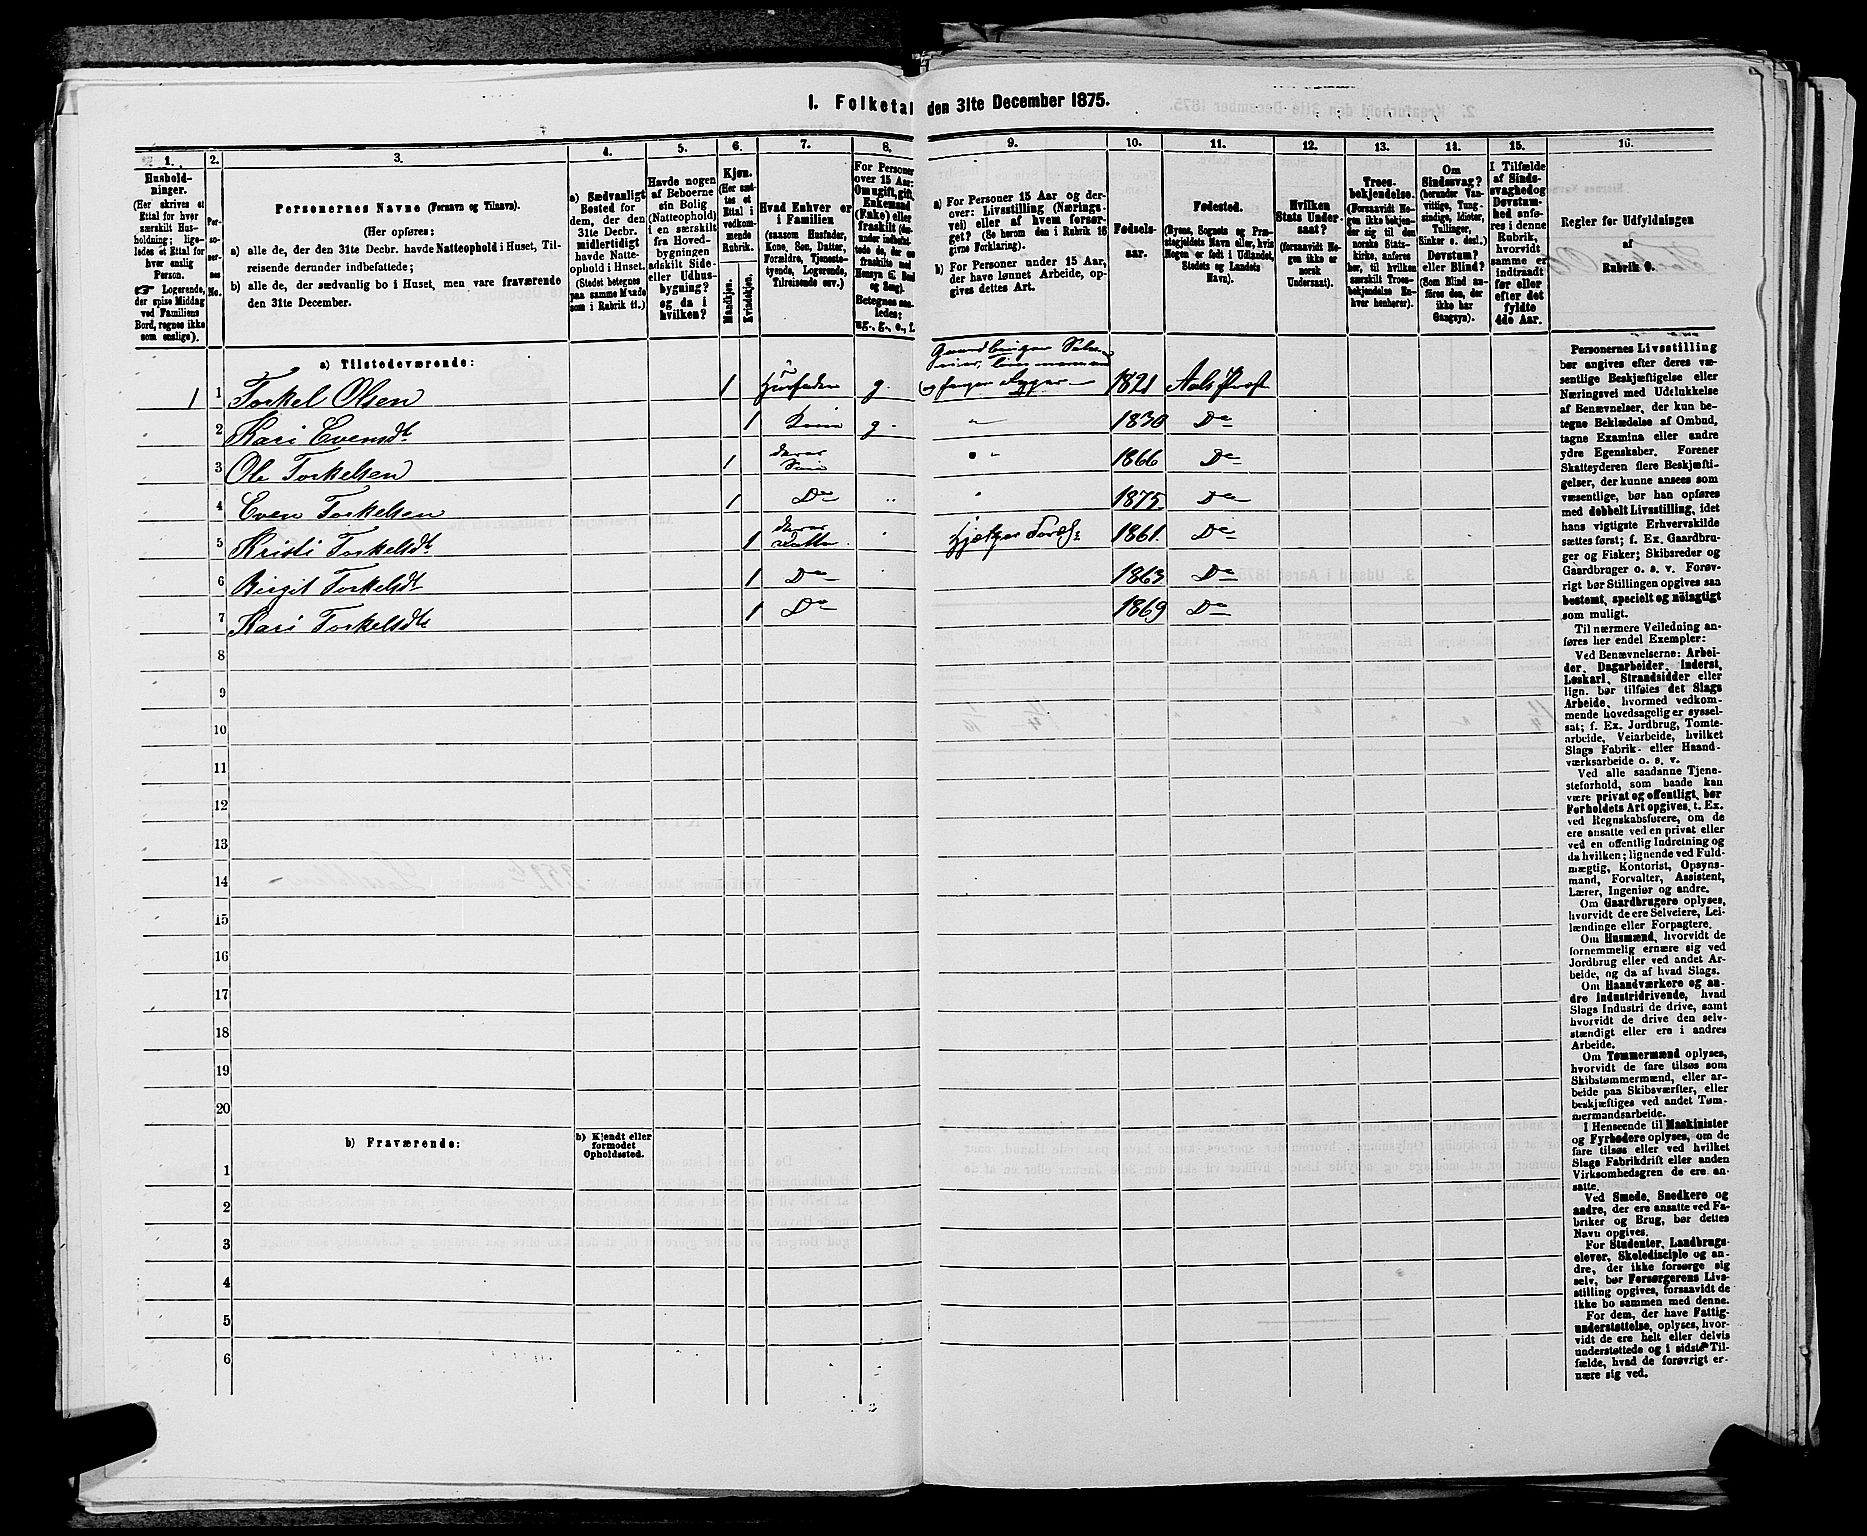 I. Folketal den 31te December 1875.
1. 2. 3. 4. 5. 6. 7. 8. 9. 10. 11. 12. 13. 14. 15. 16.
Hushold-
ninger.
(Her skrives et
Ettal for hver
særskilt Hus-
holdning; lige-
ledes et Ettal
for hver
enslig
Person.
☞ Logerende,
der spise Middag
ved Familiens
Bord, regnes ikke
som enslige).
Per-
so-
ner-
nes
No.
Personernes Navne (Fornavn og Tilnavn).
(Her opføres:
a) alle de, der den 31te Decbr. havde Natteophold i Huset, Til-
reisende derunder indbefattede;
b) alle de, der sædvanlig bo i Huset, men vare fraværende
den 31te December.
a) Sædvanligt
Bosted for
dem, der den
31te Decbr.
midlertidigt
havde Natte-
ophold i Huset.
(Stedet betegnes
paa samme Maade
som i Rubrik 11.)
Havde nogen
af Beboerne
sin Bolig
(Natteophold)
i en særskilt
fra Hoved-
bygningen
adskilt Side-
eller Udhus-
bygning?
og da i
hvilken?
Kjøn.
(Her sæt-
tes et
Ettal i
vedkom-
mende
Rubrik.
Mandkjøn.
Kvindekjøn.
Hvad Enhver er
i Familien
(saasom Husfader,
Kone, Søn, Datter,
Forældre, Tjeneste-
tyende, Logerende,
Tilreisende osv.)
For Personer
over 15 Aar:
Om ugift, gift,
Enkemand
(Enke) eller
fraskilt
Betegnes saa-
ledes:
ug., g., e., f.
a) For Personer 15 Aar og der-
over: Livsstilling (Nærings-
vei) eller af hvem forsør-
get? (Se herom den i Rubrik 16
givne Forklaring).
b) For Personer under 15 Aar,
der have lønnet Arbeide, op-
gives dettes Art.
Fødsels-
aar.
Fødested.
(Byens, Sognets og Præ-
stegjeldets Navn eller, hvis
Nogen er født i Udlandet,
Stedets og Landets
Navn).
Hvilken
Stats Under-
saat?
(forsaavidt No-
gen ikke er
norsk
Undersaat).
Troes-
bekjendelse.
(Forsaavidt No-
gen ikke bekjen-
der sig til den
norske Stats-
kirke, anføres
her, til hvilken
særskilt Troes-
bekjendelse En-
hver henhører).
Om
Sindssvag?
(herunder Van-
vittige, Tung-
sindige, Idioter,
Tullinger,
Sinker o. desl.)
Døvstum?
eller Blind?
(Som Blind an-
føres den, der
ikke har
Gangsyn).
I Tilfælde
af Sinds-
svaghed og
Døvstum-
hed anfø-
res i denne
Rubrik,
hvorvidt
samme er
indtraadt
før eller
efter det
fyldte
4de Aar.
Regler for Udfyldningen
af
Rubrik 9.
a) Tilstedeværende:
Gaardbruger Selv-
eier,
1 1 Torkel Olsen 1 Husfader g. 1821 Aals Præst
2 Kari Evensdt 1 Kone g. " 1830 Do
3 Ole Torkelsen 1 deres Søn " 1866 Do
4 Even Torkelsen 1 Do " " 1875 Do
5 Kristi Torkelsdt 1 deres Datter 1861 Do
6 Birgit Torkelsdt 1 Do 1863 Do
7 Kari Torkelsdt 1 Do 1869 Do
8
9
10
11
12
13
14
15
16
17
18
19
20
b) Fraværende:
b) Kjendt eller
formodet
Opholdssted.
1
2
3
4
5
6
Personernes Livsstilling
bør angives efter deres væ-
sentlige Beskjæftigelse eller
Næringsvei med Udelukkelse
af Benævnelser, der kun be-
tegne Beklædelse af Ombud,
tagne Examina eller andre
ydre Egenskaber. Forener
Skatteyderen flere Beskjæfti-
gelser, der kunne ansees som
væsentlige, bør han opføres
med dobbelt Livsstilling, idet
hans vigtigste Erhvervskilde
sættes først; f. Ex. Gaardbru-
ger og Fisker; Skibsreder og
Gaardbruger o. s. v. Forøv-
rigt bør Stillingen opgives saa
bestemt, specielt og nöiagtigt
som muligt.
Til nærmere Veiledning an-
føres her endel Exempler:
Ved Benævnelserne: Arbei-
der, Dagarbeider, Inderst,
Løskarl, Strandsidder eller
lign. bør tilføies det Slags
Arbeide, hvormed vedkom-
mende hovedsagelig er syssel-
sat; f. Ex. Jordbrug, Tomte-
arbeide, Veiarbeide, hvilket
Slags Fabrik- eller Haand-
værksarbeide o. s. v.
Ved alle saadanne Tjene-
steforhold, som baade kan
være privat og offentligt, bør
Forholdets Art opgives, t. Ex.
ved Regnskabsførere, om de
ere ansatte ved en privat eller
ved en offentlig Indretning og
da hvilken; lignende ved Fuld-
mægtig, Kontorist, Opsyns-
mand, Forvalter, Assistent,
Lærer, Ingeniør og andre.
Om Gaardbrugere oplyses,
hvorvidt de ere Selveiere, Lei-
lændinge eller Forpagtere.
Om Husmænd, hvorvidt de
fornemmelig ernære sig ved
Jordbrug eller ved andet Ar-
beide, og da af hvad Slags.
Om Haandværkere og an-
dre Industridrivende, hvad
Slags Industri de drive, samt
hvorvidt de drive den selv-
stændigt eller ere i andres
Arbeide.
Om Tømmermænd oplyses,
hvorvidt de fare tilsøs som
Skibstømmermænd, eller ar-
beide paa Skibsværfter, eller
beskjæftiges ved andet Tøm-
mermandsarbeide.
I Henseende til Maskinister
og Fyrbødere oplyses, om de
fare tilsøs eller ved hvilket
Slags Fabrikdrift eller anden
Virksomhedsgren de ere an-
satte.
Ved Smede, Snedkere og
andre, der ere ansatte ved Fa-
briker og Brug, bør dettes
Navn opgives.
For Studenter, Landbrugs-
elever, Skoledisciple og an-
dre, der ikke forsørge sig
selv, bør Forsørgerens Livs-
stilling opgives, forsaavidt de
ikke bo sammen med denne.
For dem, der have Fattig-
understøttelse, oplyses, hvor-
vidt de ere helt eller delvis
understøttede og i sidste Til-
fælde, hvad de forøvrigt er-
nære sig ved.